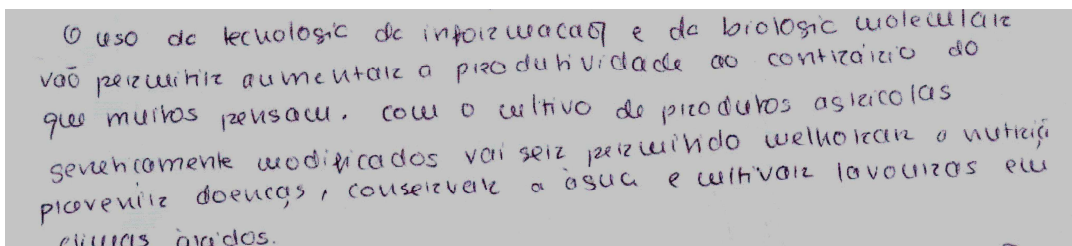 O uso da tecnologia da informacaõ e da biologia molecular
vaõ permitir aumentar a produtividade ao contrário do
que muitos pensam. com o cultivo de produtos agricolas
geneticamente modificados vai ser permitido melhorar a nutriçã
prevenir doenças, conservar a água e cultivar lavouras em
climas áridos.